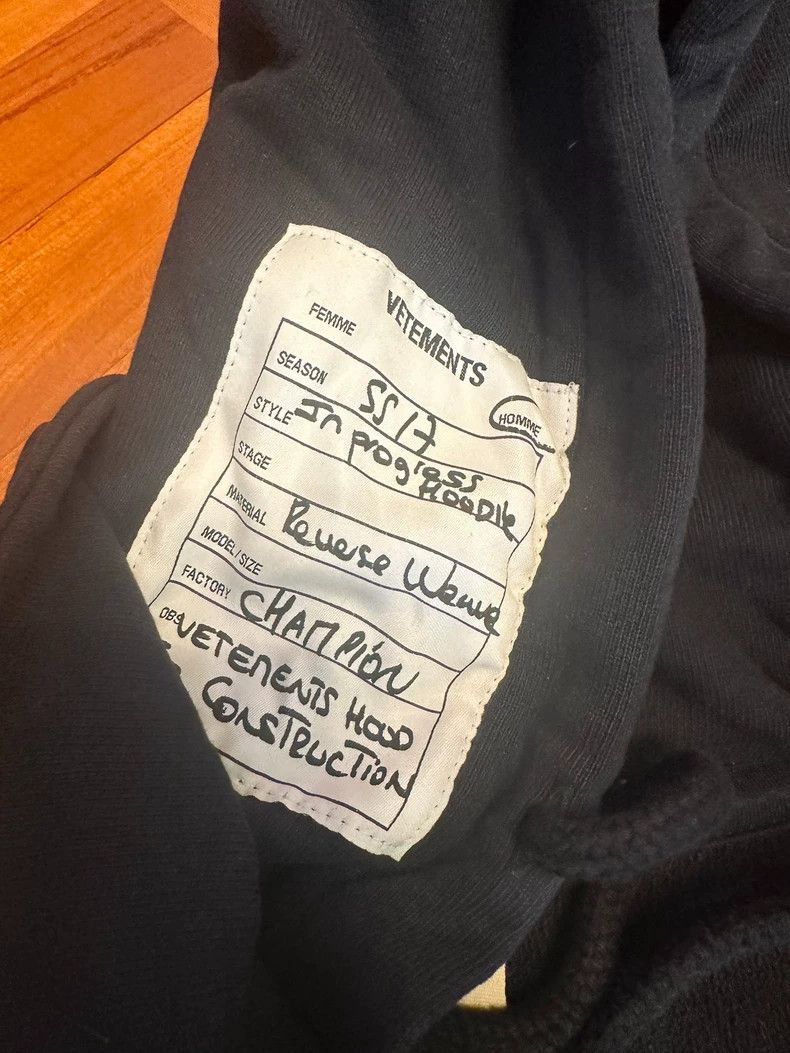 VETEMENTS
FEMME HOMME
SEASON SS17
STYLE In progress
HOODIE
STAGE
MATERIAL Reverse Weave
MODEL/SIZE
FACTORY CHAMPION
OBS VETEMENTS HOOD
CONSTRUCTION